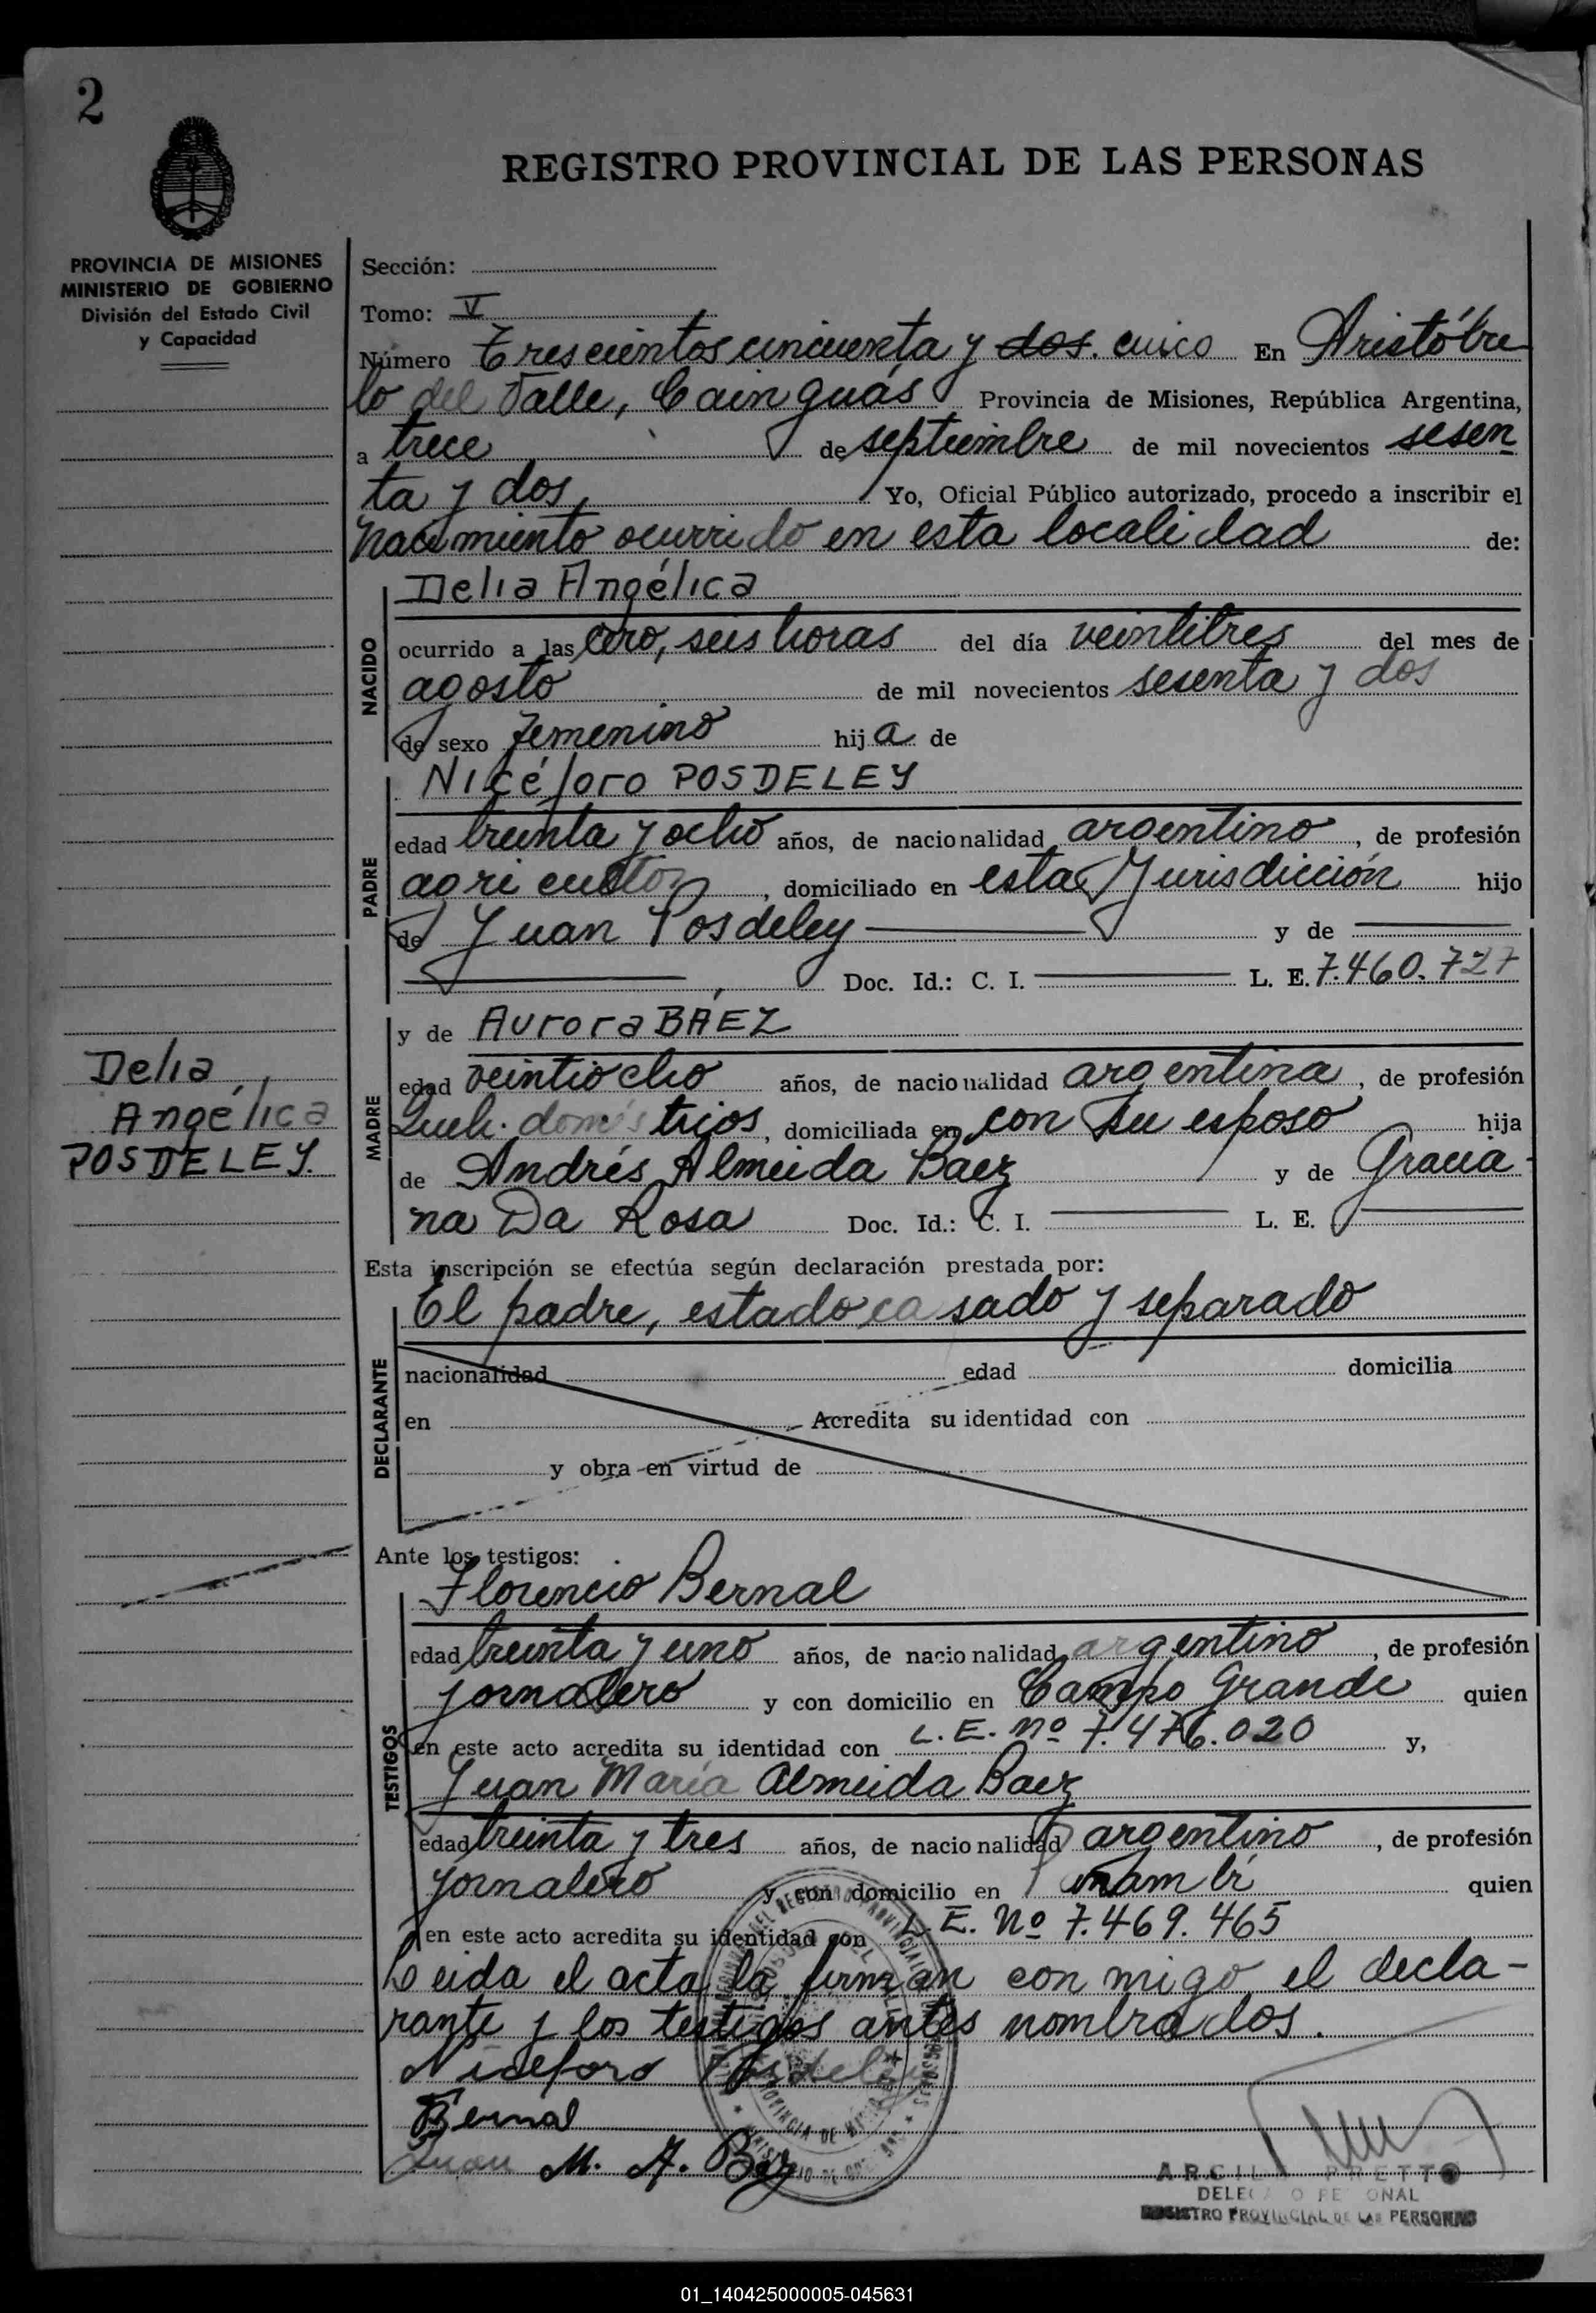 2
REGISTRO PROVINCIAL DE LAS PERSONAS
PROVINCIA DE MISIONES
MINISTERIO DE GOBIERNO
División del Estado Civil
y Capacidad
Sección:
Tomo: V
Número Trescientos cincuenta y dos. cinco En Aristóbu
lo del Valle, Cainguás Provincia de Misiones, República Argentina,
a trece de septiembre de mil novecientos sesen
ta y dos, Yo, Oficial Público autorizado, procedo a inscribir el
nacimiento ocurrido en esta localidad de:
NACIDO
Delia Angélica
ocurrido a las cero, seis horas del día veintitres del mes de
agosto de mil novecientos sesenta y dos
de sexo femenino hija de
PADRE
Nicéforo POSDELEY
edad treinta y ocho años, de nacionalidad argentino, de profesión
agricultor, domiciliado en esta Jurisdicción hijo
de Juan Posdeley y de
Doc. Id.: C. I. L. E. 7.460.727
MADRE
y de Aurora BÁEZ
edad veintiocho años, de nacionalidad argentina, de profesión
Queh. domésticos, domiciliada en con su esposo hija
de Andrés Almeida Baez y de Gracia
na Da Rosa Doc. Id.: C. I. L. E.
Delia
Angélica
POSDELEY.
Esta inscripción se efectúa según declaración prestada por:
DECLARANTE
El padre, estado casado y separado
nacionalidad edad domicilia
en Acredita su identidad con
y obra en virtud de
Ante los testigos:
TESTIGOS
Florencio Bernal
edad treinta y uno años, de nacionalidad argentino, de profesión
jornalero y con domicilio en Campo Grande quien
en este acto acredita su identidad con L. E. Nº 7.476.020 y,
Juan María Almeida Baez
edad treinta y tres años, de nacionalidad argentino, de profesión
jornalero y con domicilio en Panambí quien
en este acto acredita su identidad con L. E. Nº 7.469.465
Leida el acta la firman con migo el decla-
rante y los testigos antes nombrados.
Niceforo Posdeley
F Bernal
Juan M. A. Baez
REGISTRO PROVINCIAL DE LAS PERSONAS
01_140425000005-045631